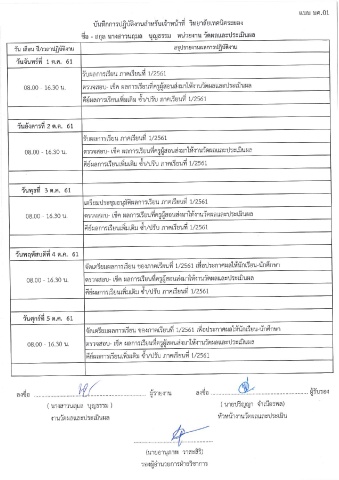 แบบ บศ.01
บันทึกการปฏิบัติงานสำหรับเจ้าหน้าที่ วิทยาลัยเทคนิคระยอง
ชื่อ - สกุล นางสาวนฤมล บุญธรรม หน่วยงาน วัดผลและประเมินผล
วัน เดือน ปี/เวลาปฏิบัติงาน สรุปรายงานผลการปฏิบัติงาน
วันจันทร์ที่ 1 ต.ค. 61
รับผลการเรียน ภาคเรียนที่ 1/2561
08.00 - 16.30 น. ตรวจสอบ- เช็ค ผลการเรียนที่ครูผู้สอนส่งมาให้งานวัดผลและประเมินผล
คีย์ผลการเรียนเพิ่มเติม ซ้ำ/ปรับ ภาคเรียนที่ 1/2561
วันอังคารที่ 2 ต.ค. 61
รับผลการเรียน ภาคเรียนที่ 1/2561
08.00 - 16.30 น. ตรวจสอบ- เช็ค ผลการเรียนที่ครูผู้สอนส่งมาให้งานวัดผลและประเมินผล
คีย์ผลการเรียนเพิ่มเติม ซ้ำ/ปรับ ภาคเรียนที่ 1/2561
วันพุธที่ 3 ต.ค. 61
เตรียมประชุมอนุมัติผลการเรียน ภาคเรียนที่ 1/2561
08.00 - 16.30 น. ตรวจสอบ- เช็ค ผลการเรียนที่ครูผู้สอนส่งมาให้งานวัดผลและประเมินผล
คีย์ผลการเรียนเพิ่มเติม ซ้ำ/ปรับ ภาคเรียนที่ 1/2561
วันพฤหัสบดีที่ 4 ต.ค. 61
จัดเตรียมผลการเรียน ของภาคเรียนที่ 1/2561 เพื่อประกาศผลให้นักเรียน-นักศึกษา
08.00 - 16.30 น. ตรวจสอบ- เช็ค ผลการเรียนที่ครูผู้สอนส่งมาให้งานวัดผลและประเมินผล
คีย์ผลการเรียนเพิ่มเติม ซ้ำ/ปรับ ภาคเรียนที่ 1/2561
วันศุกร์ที่ 5 ต.ค. 61
จัดเตรียมผลการเรียน ของภาคเรียนที่ 1/2561 เพื่อประกาศผลให้นักเรียน-นักศึกษา
08.00 - 16.30 น. ตรวจสอบ- เช็ค ผลการเรียนที่ครูผู้สอนส่งมาให้งานวัดผลและประเมินผล
คีย์ผลการเรียนเพิ่มเติม ซ้ำ/ปรับ ภาคเรียนที่ 1/2561
ลงชื่อ ผู้รายงาน ลงชื่อ ผู้รับรอง
( นางสาวนฤมล บุญธรรม )
งานวัดผลและประเมินผล หัวหน้างานวัดผลและประเมิน
รองผู้อำนวยการฝ่ายวิชาการ